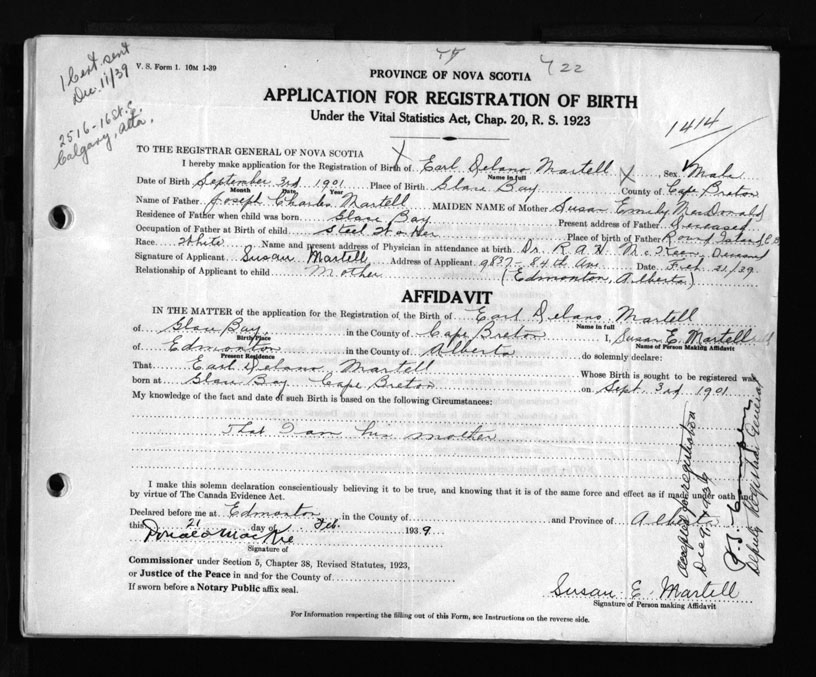 1 Cert. sent
Dec. 11/39
2516-16 St. E.
Calgary, Alta.
V. S. Form 1. 10M 1-39
722
PROVINCE OF NOVA SCOTIA
APPLICATION FOR REGISTRATION OF BIRTH
Under the Vital Statistics Act, Chap. 20, R. S. 1923
1414
TO THE REGISTRAR GENERAL OF NOVA SCOTIA
I hereby make application for the Registration of Birth of Earl Delano Martell Sex Male
Name in full
Date of Birth September 3rd 1901 Place of Birth Glace Bay County of Cape Breton
Month Date Year
Name of Father Joseph Charles Martell MAIDEN NAME of Mother Susan Emily MacDonald
Residence of Father when child was born Glace Bay Present address of Father Deceased
Occupation of Father at Birth of child Steel Worker Place of birth of Father Round Island C.B.
Race White Name and present address of Physician in attendance at birth Dr. R. A. H. McKeen, Deceased
Signature of Applicant Susan Martell Address of Applicant 9837-84th Ave Date Feb 21/39
Relationship of Applicant to child Mother (Edmonton, Alberta)
AFFIDAVIT
IN THE MATTER of the application for the Registration of the Birth of Earl Delano Martell
Name in full
of Glace Bay, in the County of Cape Breton I, Susan E. Martell
Birth Place Name of Person Making Affidavit
of Edmonton in the County of Alberta do solemnly declare:
Present Residence
That Earl Delano Martell Whose Birth is sought to be registered was
born at Glace Bay Cape Breton on Sept. 3rd 1901
My knowledge of the fact and date of such Birth is based on the following Circumstances:
That I am his mother
I make this solemn declaration conscientiously believing it to be true, and knowing that it is of the same force and effect as if made under oath and
by virtue of The Canada Evidence Act.
Declared before me at Edmonton in the County of and Province of Alberta
this 21 day of Feb. 1939
Donald MacKie
Signature of
Commissioner under Section 5, Chapter 38, Revised Statutes, 1923,
or Justice of the Peace in and for the County of
If sworn before a Notary Public affix seal.
Susan E. Martell
Signature of Person making Affidavit
For Information respecting the filling out of this Form, see Instructions on the reverse side.
Accepted for registration
Deputy Registrar General